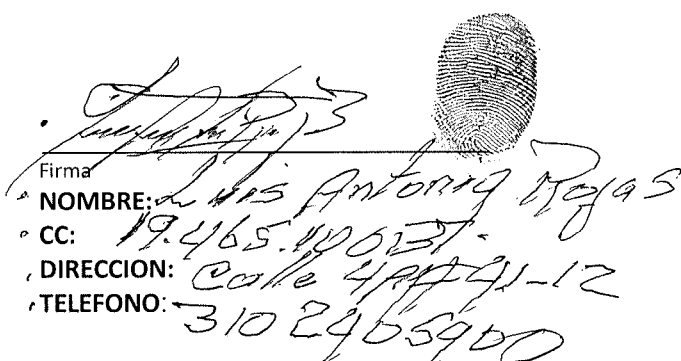 Firma
NOMBRE: Luis Antonio Rojas
CC:
DIRECCION: Calle
TELEFONO: 310 2405900